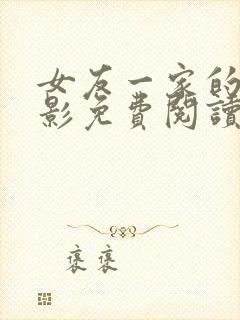 女友一家的
影免費閱讀
褒褒